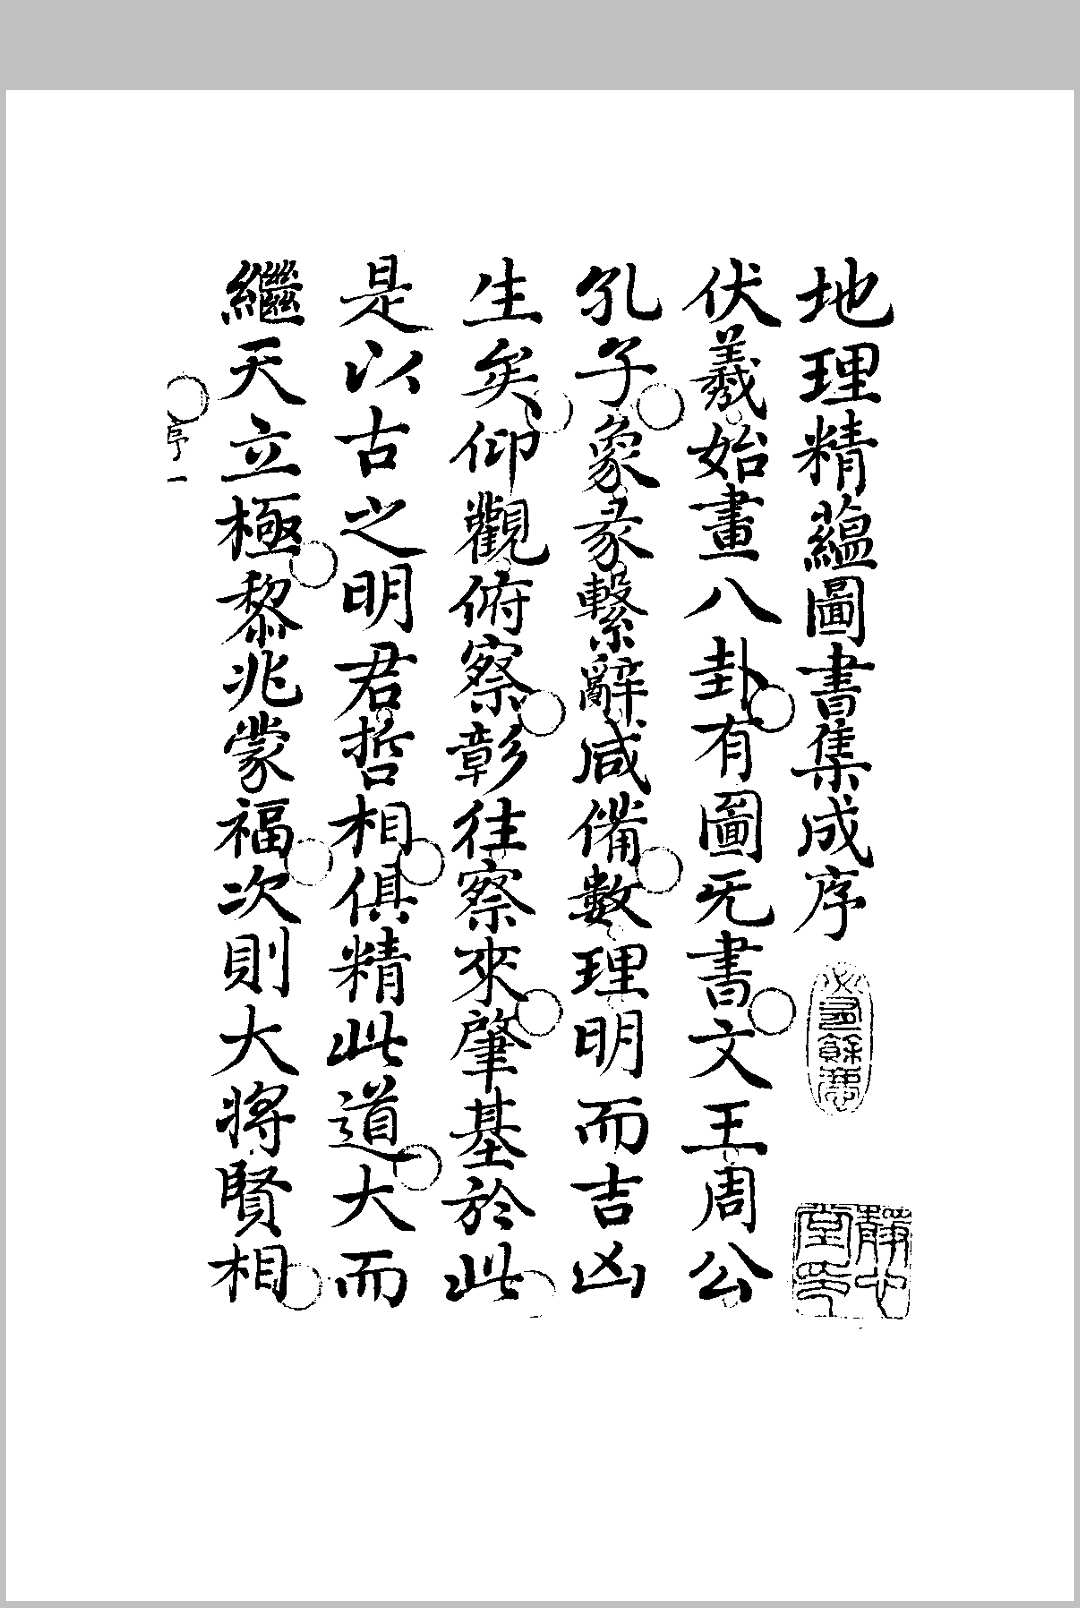 地理精蘊圖書集成序
靜心堂印
伏羲始畫八卦有圖无書文王周公
孔子象彖繫辭咸備數理明而吉凶
生矣仰觀俯察彰往察來肇基於此
是以古之明君哲相俱精此道大而
繼天立極黎兆蒙福次則大將賢相
序一